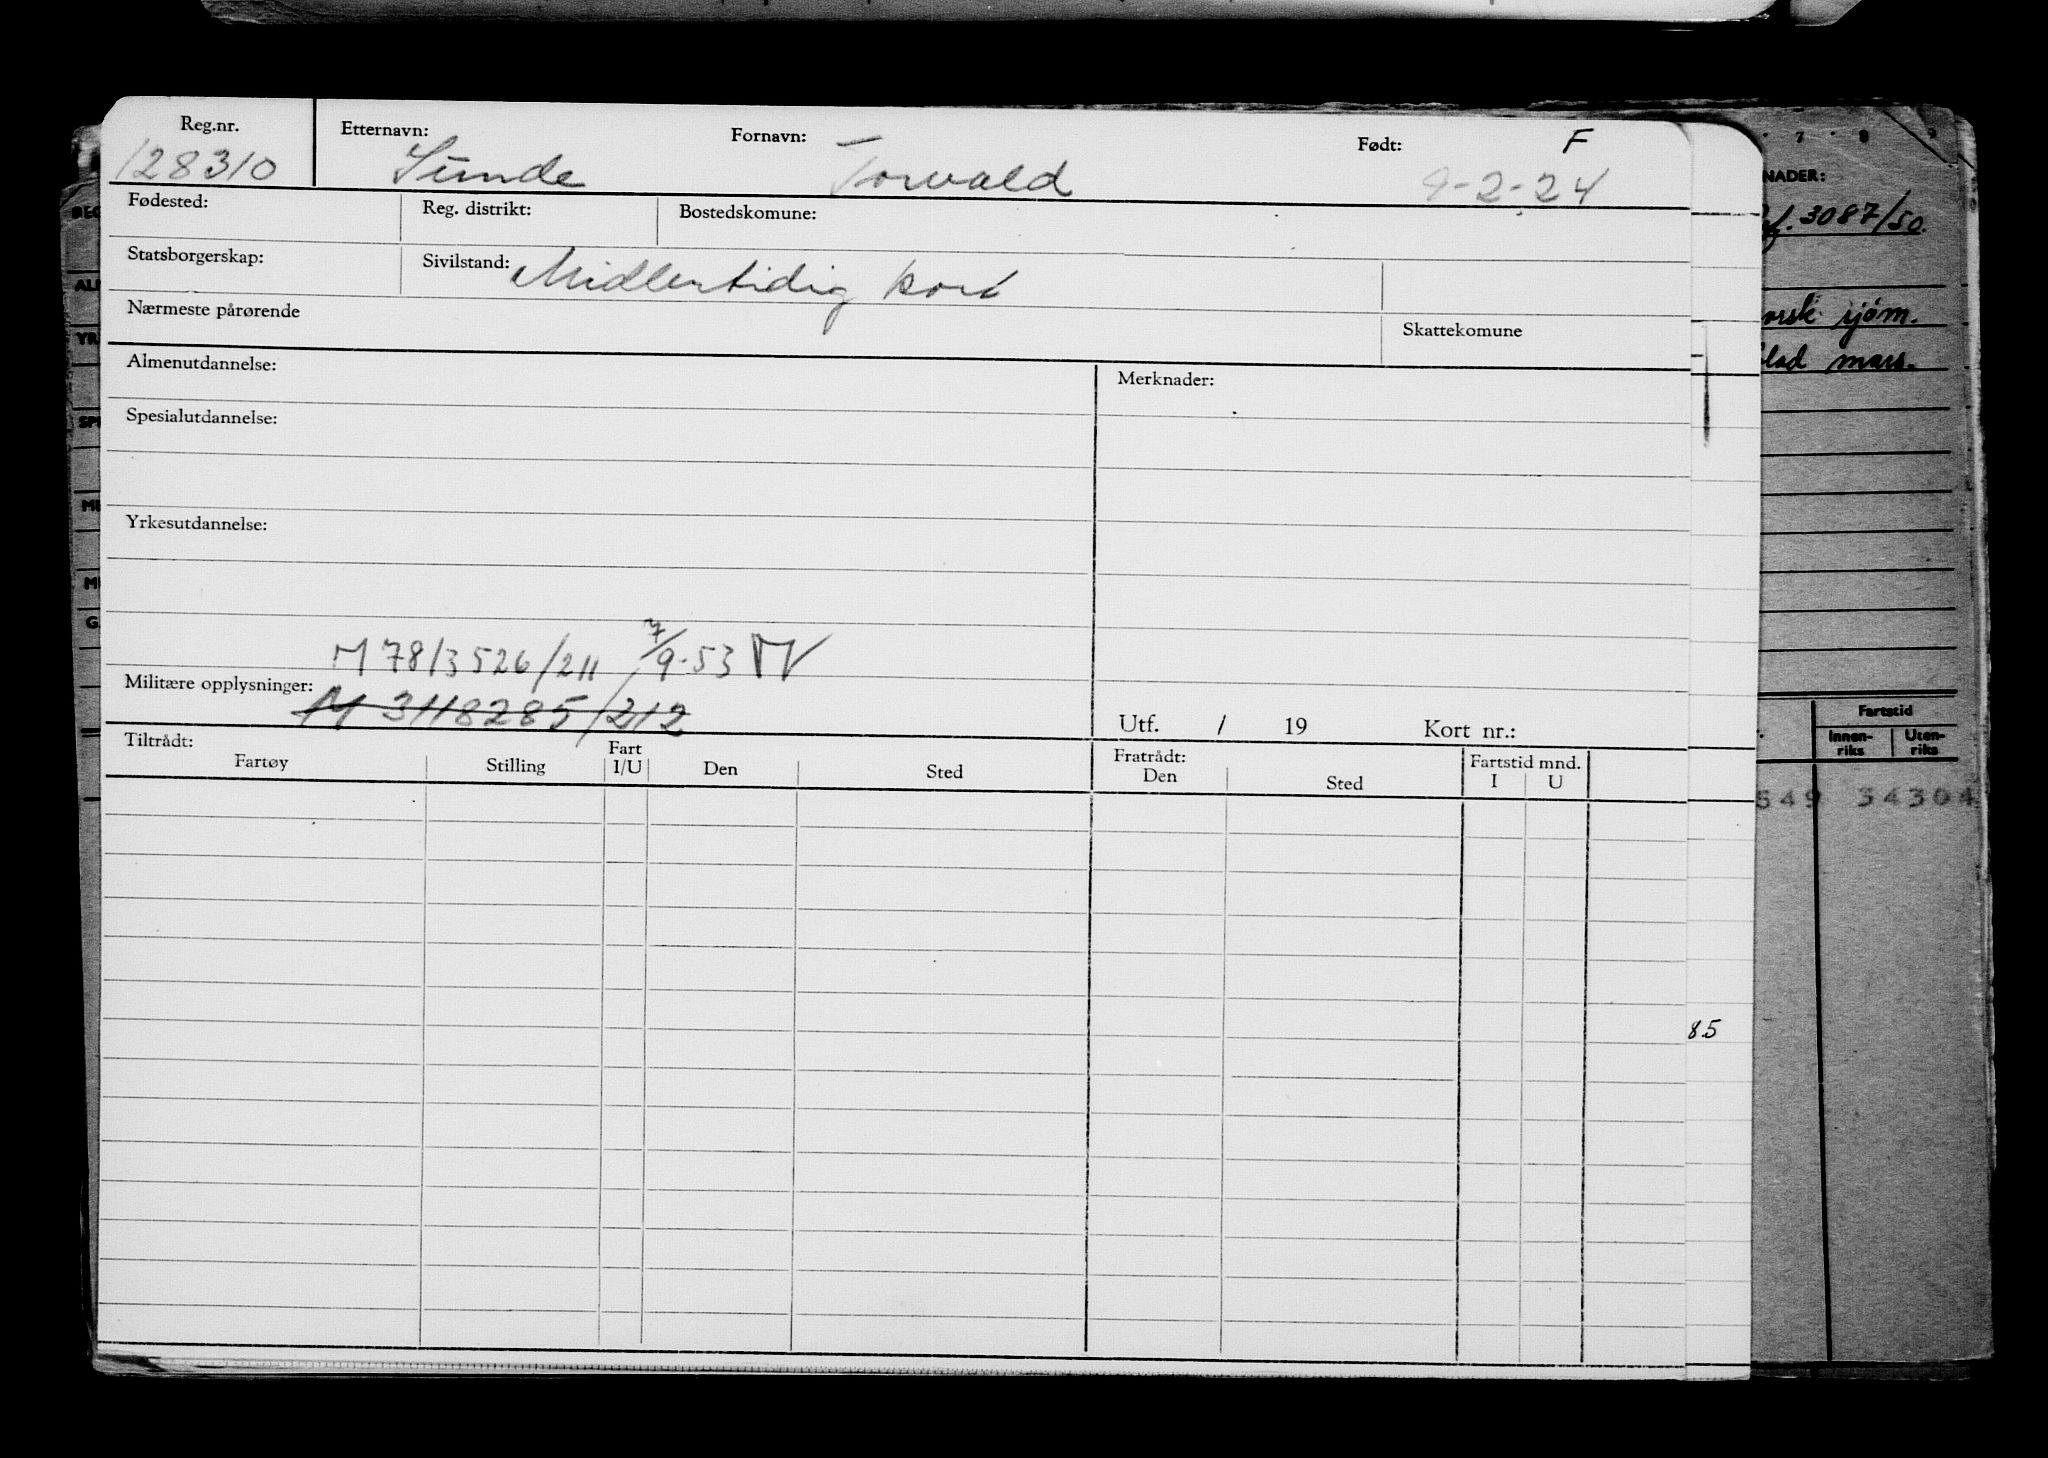 Reg.nr. Etternavn: Fornavn: Født: F
128310 Sunde Torvald 9-2-24
Fødested: Reg. distrikt: Bostedskomune:
Statsborgerskap: Sivilstand: Midlertidig kort
Nærmeste pårørende Skattekomune
Almenutdannelse: Merknader:
Spesialutdannelse:
Yrkesutdannelse:
M 7813526/211 7/9-53
Militære opplysninger: M 3118285/212
Utf. / 19 Kort nr.:
Tiltrådt: Fratrådt: Fartstid mnd.
Fartøy Stilling Fart I/U Den Sted Den Sted I U
7 8 9
NADER:
3087/50.
orsk sjøm.
lad mars.
Fartstid
Innen-riks Uten-riks
549 34304
8.5